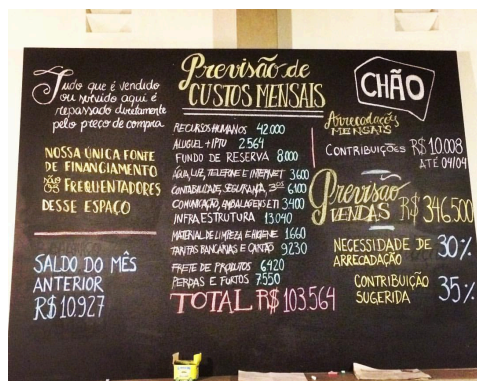 Tudo que é vendido
ou servido aqui é
repassado diretamente
pelo preço de compra
NOSSA ÚNICA FONTE
DE FINANCIAMENTO
SÃO OS FREQUENTADORES
DESSE ESPAÇO
SALDO DO MÊS
ANTERIOR
R$ 10.927
Previsão de
CUSTOS MENSAIS
RECURSOS HUMANOS 42.000
ALUGUEL + IPTU 2.564
FUNDO DE RESERVA 8.000
ÁGUA, LUZ, TELEFONE E INTERNET 3.600
CONTABILIDADE, SEGURANÇA, 6.100
COMUNICAÇÃO, EMBALAGENS E TI 3.400
INFRAESTRUTURA 13.040
MATERIAL DE LIMPEZA E HIGIENE 1.660
TARIFAS BANCÁRIAS E CARTÃO 9.230
FRETE DE PRODUTOS 6.420
PERDAS E FURTOS 7.550
TOTAL R$ 103.564
CHÃO
Arrecadações
MENSAIS
CONTRIBUIÇÕES R$ 10.008
ATÉ 04/04
Previsão
VENDAS R$ 346.500
NECESSIDADE DE
ARRECADAÇÃO 30%
CONTRIBUIÇÃO
SUGERIDA 35%